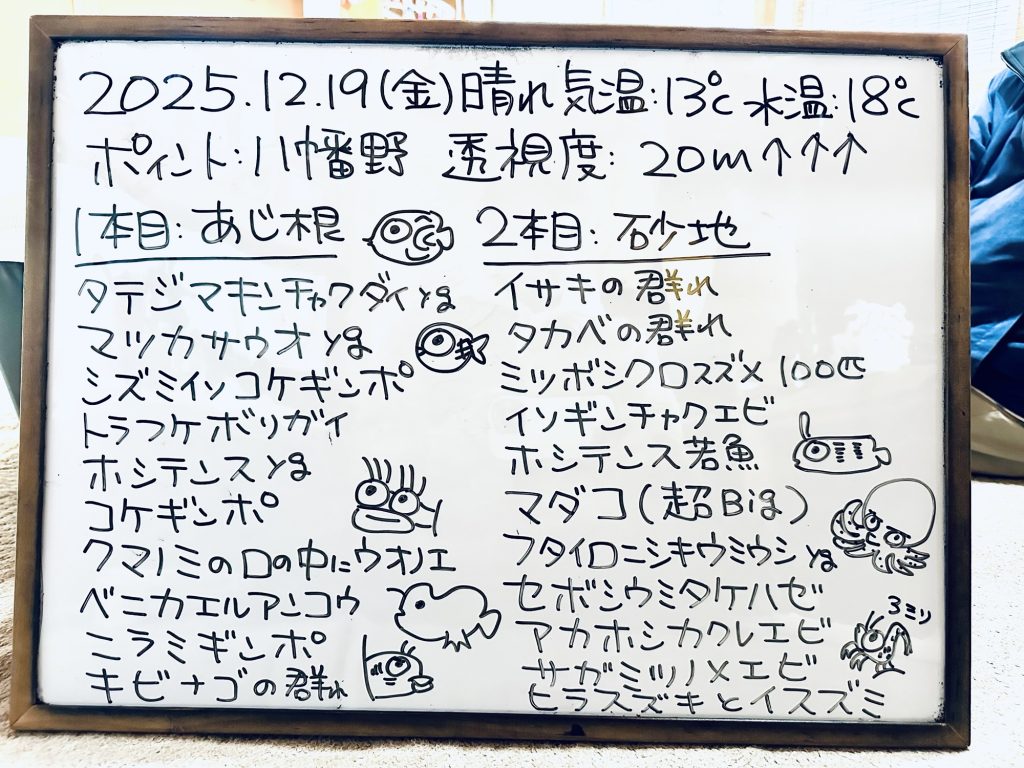 2025.12.19(金)晴れ 気温:13℃ 水温:18℃
ポイント:八幡野 透視度:20m↑↑↑
1本目:あじ根
タテジマキンチャクダイyg
マツカサウオyg
シズミイソコケギンポ
トラフケボリガイ
ホシテンスyg
コケギンポ
クマノミの口の中にウオノエ
ベニカエルアンコウ
ニラミギンポ
キビナゴの群れ
2本目:砂地
イサキの群れ
タカベの群れ
ミツボシクロスズメ 100匹
イソギンチャクエビ
ホシテンス若魚
マダコ(超Big)
フタイロニシキウミウシyg
セボシウミタケハゼ
3ミリ
アカホシカクレエビ
サガミツノメエビ
ヒラスズキとイスズミ